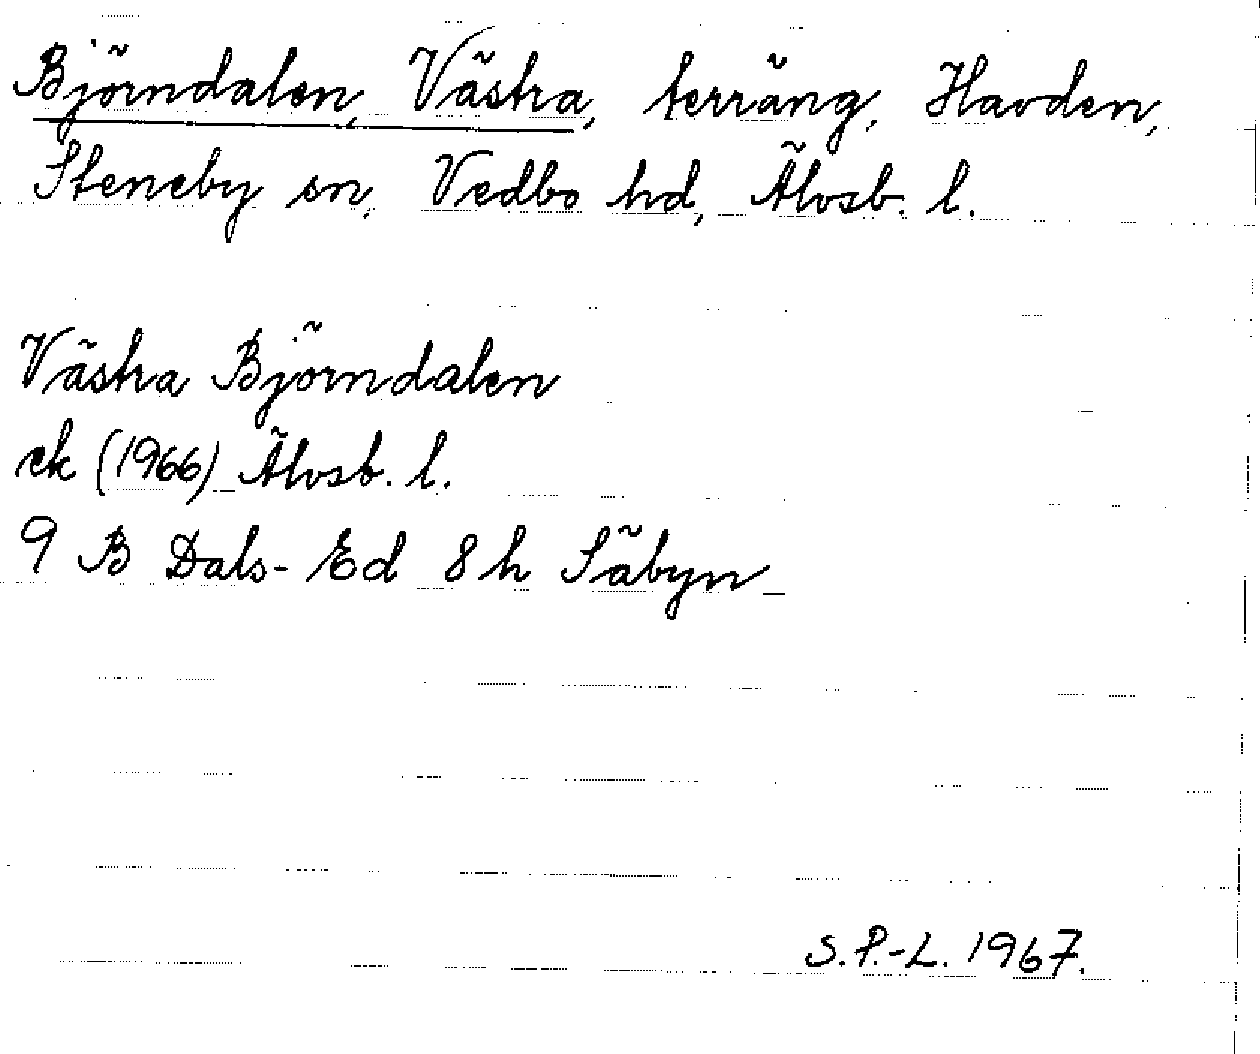 Björndalen, Västra, terräng, Havden,
Steneby sn, Vedbo hd, Älvsb. l.
Västra Björndalen
ek (1966) Älvsb. l.
9 B Dals-Ed 8 h Säbyn
S.P.-L. 1967.